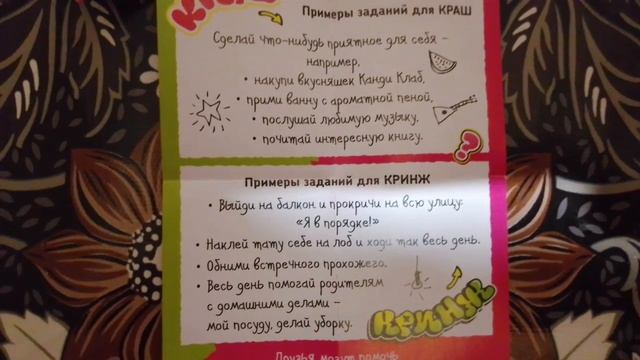 Примеры заданий для КРАШ
Сделай что-нибудь приятное для себя –
например,
• накупи вкусняшек Канди Клаб,
• прими ванну с ароматной пеной,
• послушай любимую музыку.
• почитай интересную книгу.
?
Примеры заданий для КРИНЖ
• Выйди на балкон и прокричи на всю улицу:
«Я в порядке!»
• Наклей тату себе на лоб и ходи так весь день.
• Обними встречного прохожего.
• Весь день помогай родителям
с домашними делами –
мой посуду, делай уборку.
КРИНЖ
Друзья могут помочь